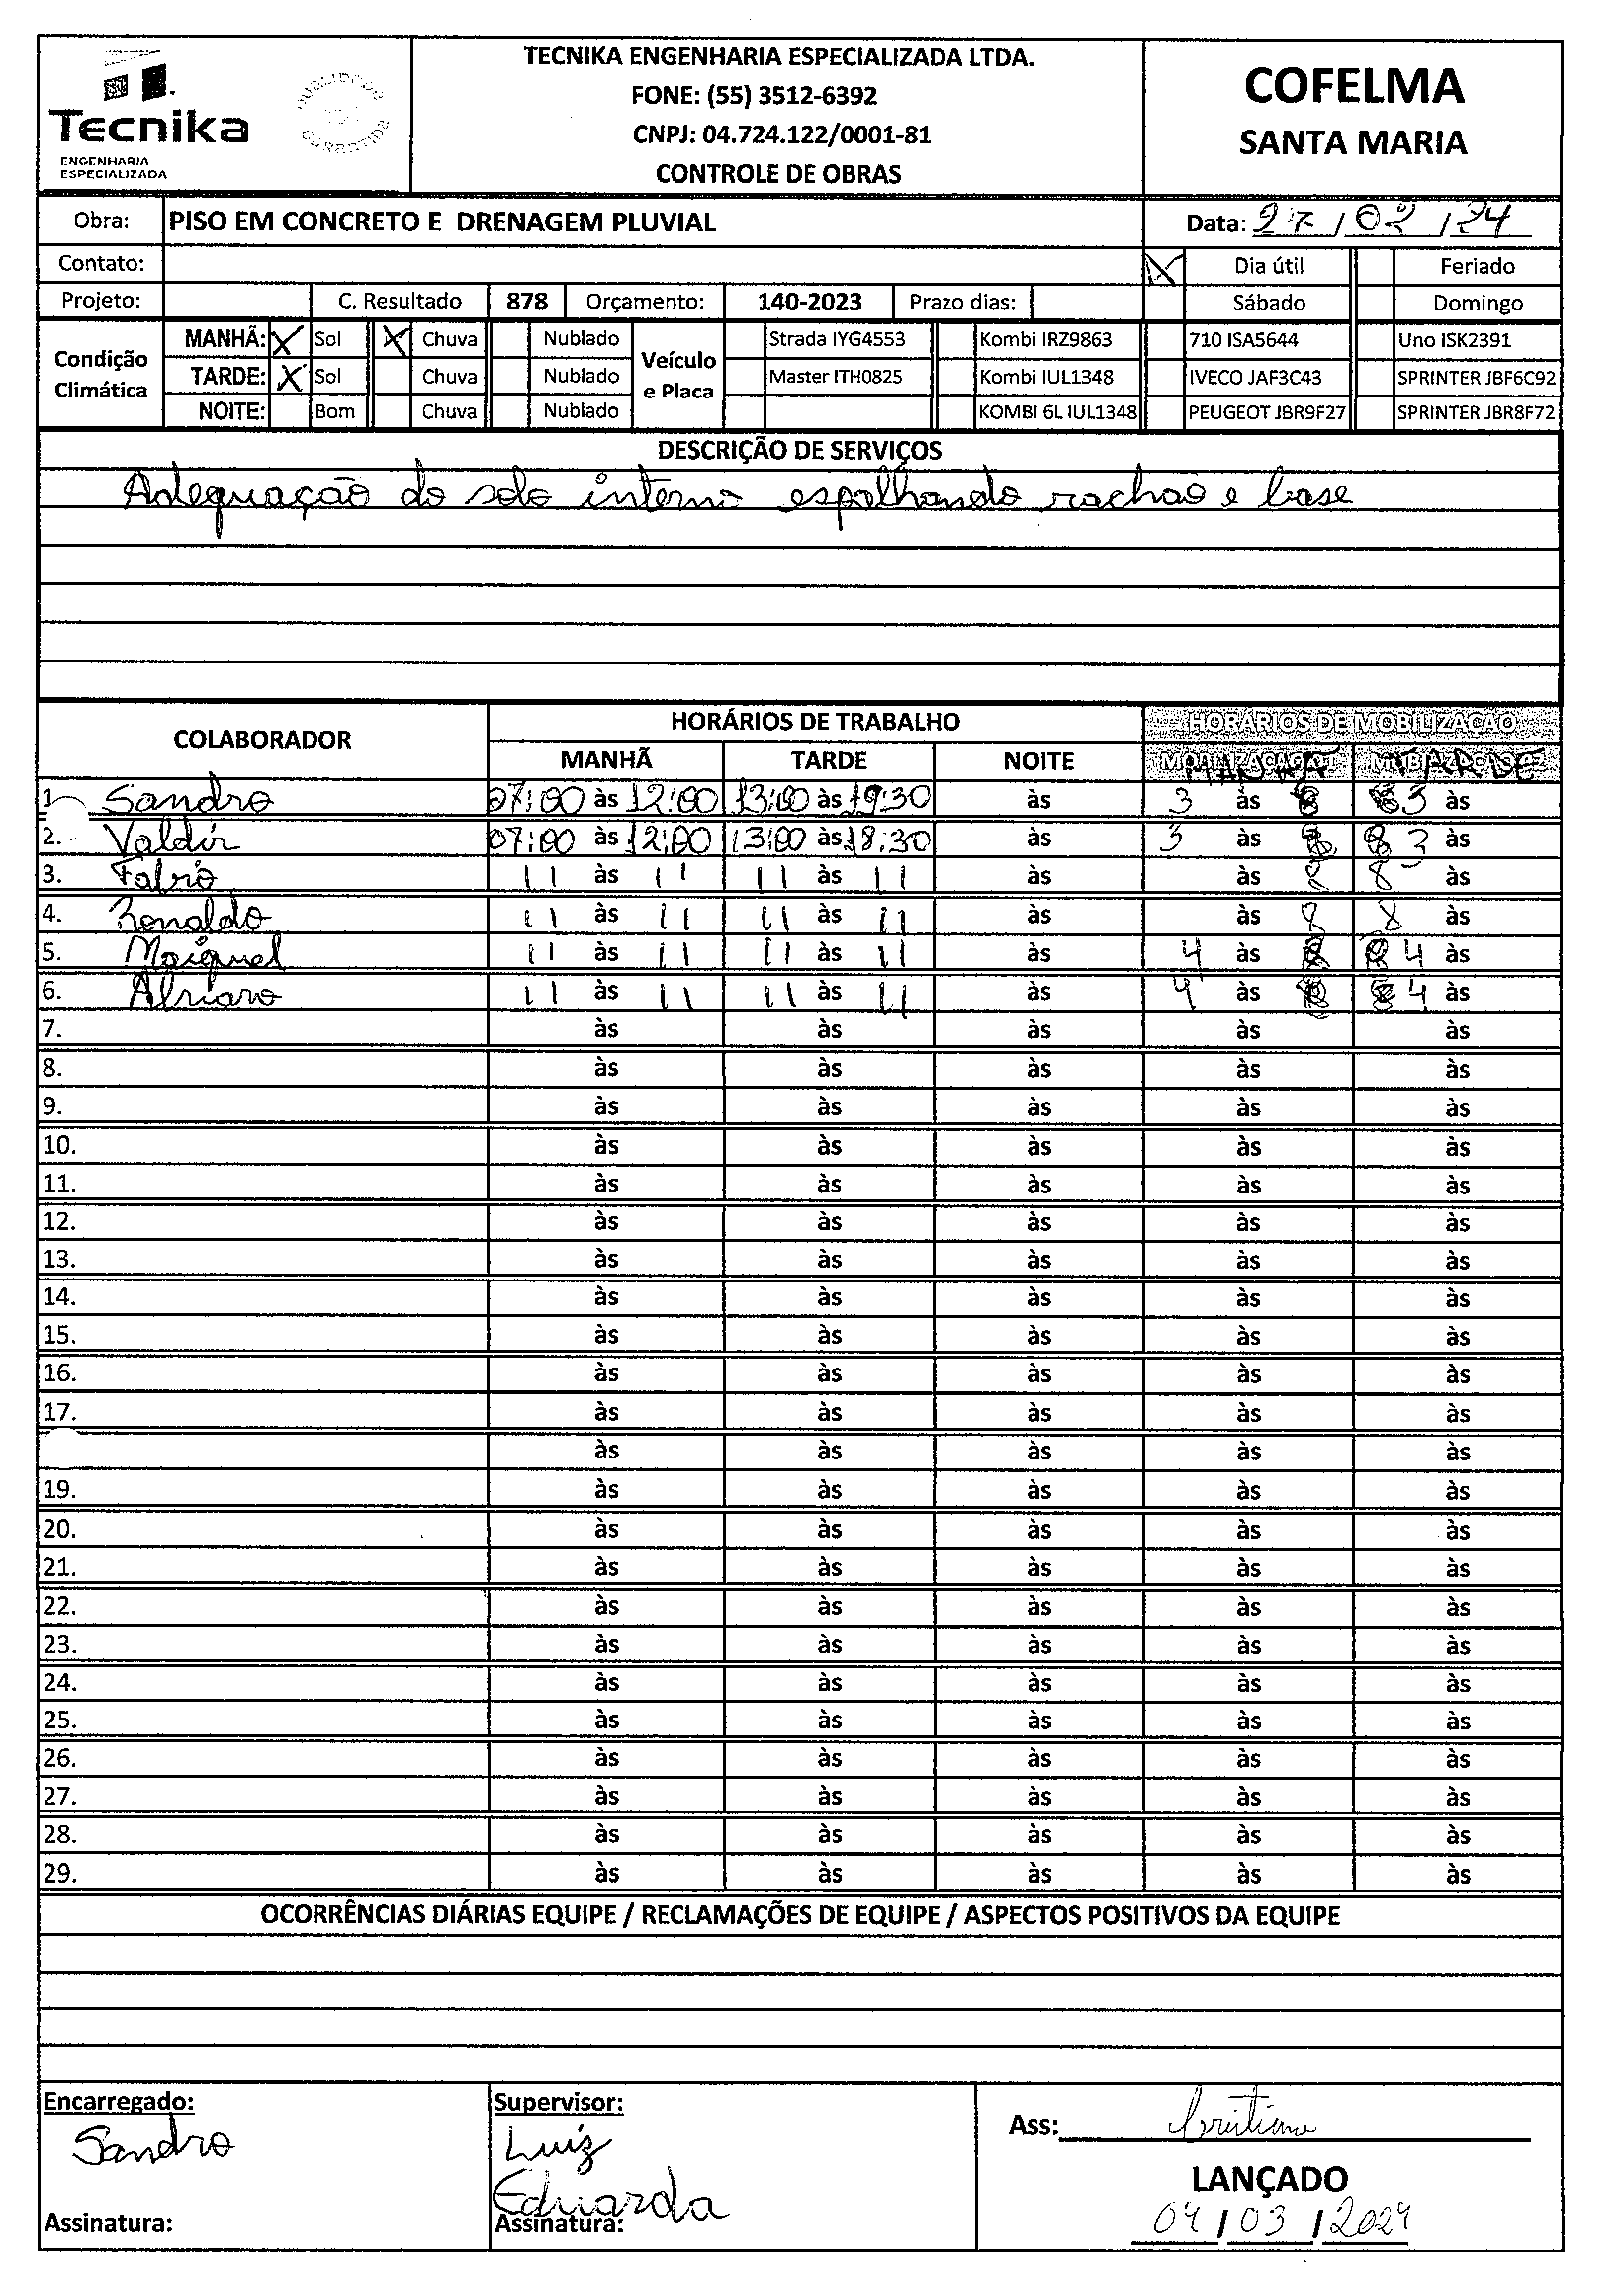 Tecnika
ENGENHARIA
ESPECIALIZADA
TECNIKA ENGENHARIA ESPECIALIZADA LTDA.
FONE: (55) 3512-6392
CNPJ: 04.724.122/0001-81
CONTROLE DE OBRAS
COFELMA
SANTA MARIA
Obra: PISO EM CONCRETO E DRENAGEM PLUVIAL Data: 27/02/24
Contato: X Dia útil Feriado
Projeto: C. Resultado 878 Orçamento: 140-2023 Prazo dias: Sábado Domingo
Condição Climática
MANHÃ: X Sol X Chuva Nublado
TARDE: X Sol Chuva Nublado
NOITE: Bom Chuva Nublado
Veículo e Placa
Strada IYG4553 Kombi IRZ9863 710 ISA5644 Uno ISK2391
Master ITH0825 Kombi IUL1348 IVECO JAF3C43 SPRINTER JBF6C92
KOMBI 6L IUL1348 PEUGEOT JBR9F27 SPRINTER JBR8F72
DESCRIÇÃO DE SERVIÇOS
Adequação do solo interno espalhando rachão e base
COLABORADOR HORÁRIOS DE TRABALHO HORÁRIOS DE MOBILIZAÇÃO
MANHÃ TARDE NOITE MANHÃ TARDE
1 Sandro 07:00 às 12:00 13:00 às 19:30 às 3 às 3 às
2. Valdir 07:00 às 12:00 13:00 às 18:30 às 3 às 3 às
3. Fabio 11 às 11 11 às 11 às às 8 8 às
4. Ronaldo 11 às 11 11 às 11 às às 8 8 às
5. Maiquel 11 às 11 11 às 11 às 4 às 4 às
6. 11 às 11 11 às 11 às 4 às 4 às
7. às às às às às
8. às às às às às
9. às às às às às
10. às às às às às
11. às às às às às
12. às às às às às
13. às às às às às
14. às às às às às
15. às às às às às
16. às às às às às
17. às às às às às
às às às às às
19. às às às às às
20. às às às às às
21. às às às às às
22. às às às às às
23. às às às às às
24. às às às às às
25. às às às às às
26. às às às às às
27. às às às às às
28. às às às às às
29. às às às às às
OCORRÊNCIAS DIÁRIAS EQUIPE / RECLAMAÇÕES DE EQUIPE / ASPECTOS POSITIVOS DA EQUIPE
Encarregado:
Sandro
Assinatura:
Supervisor:
Luiz
Eduarda
Assinatura:
Ass: Cristiano
LANÇADO
04/03/2024